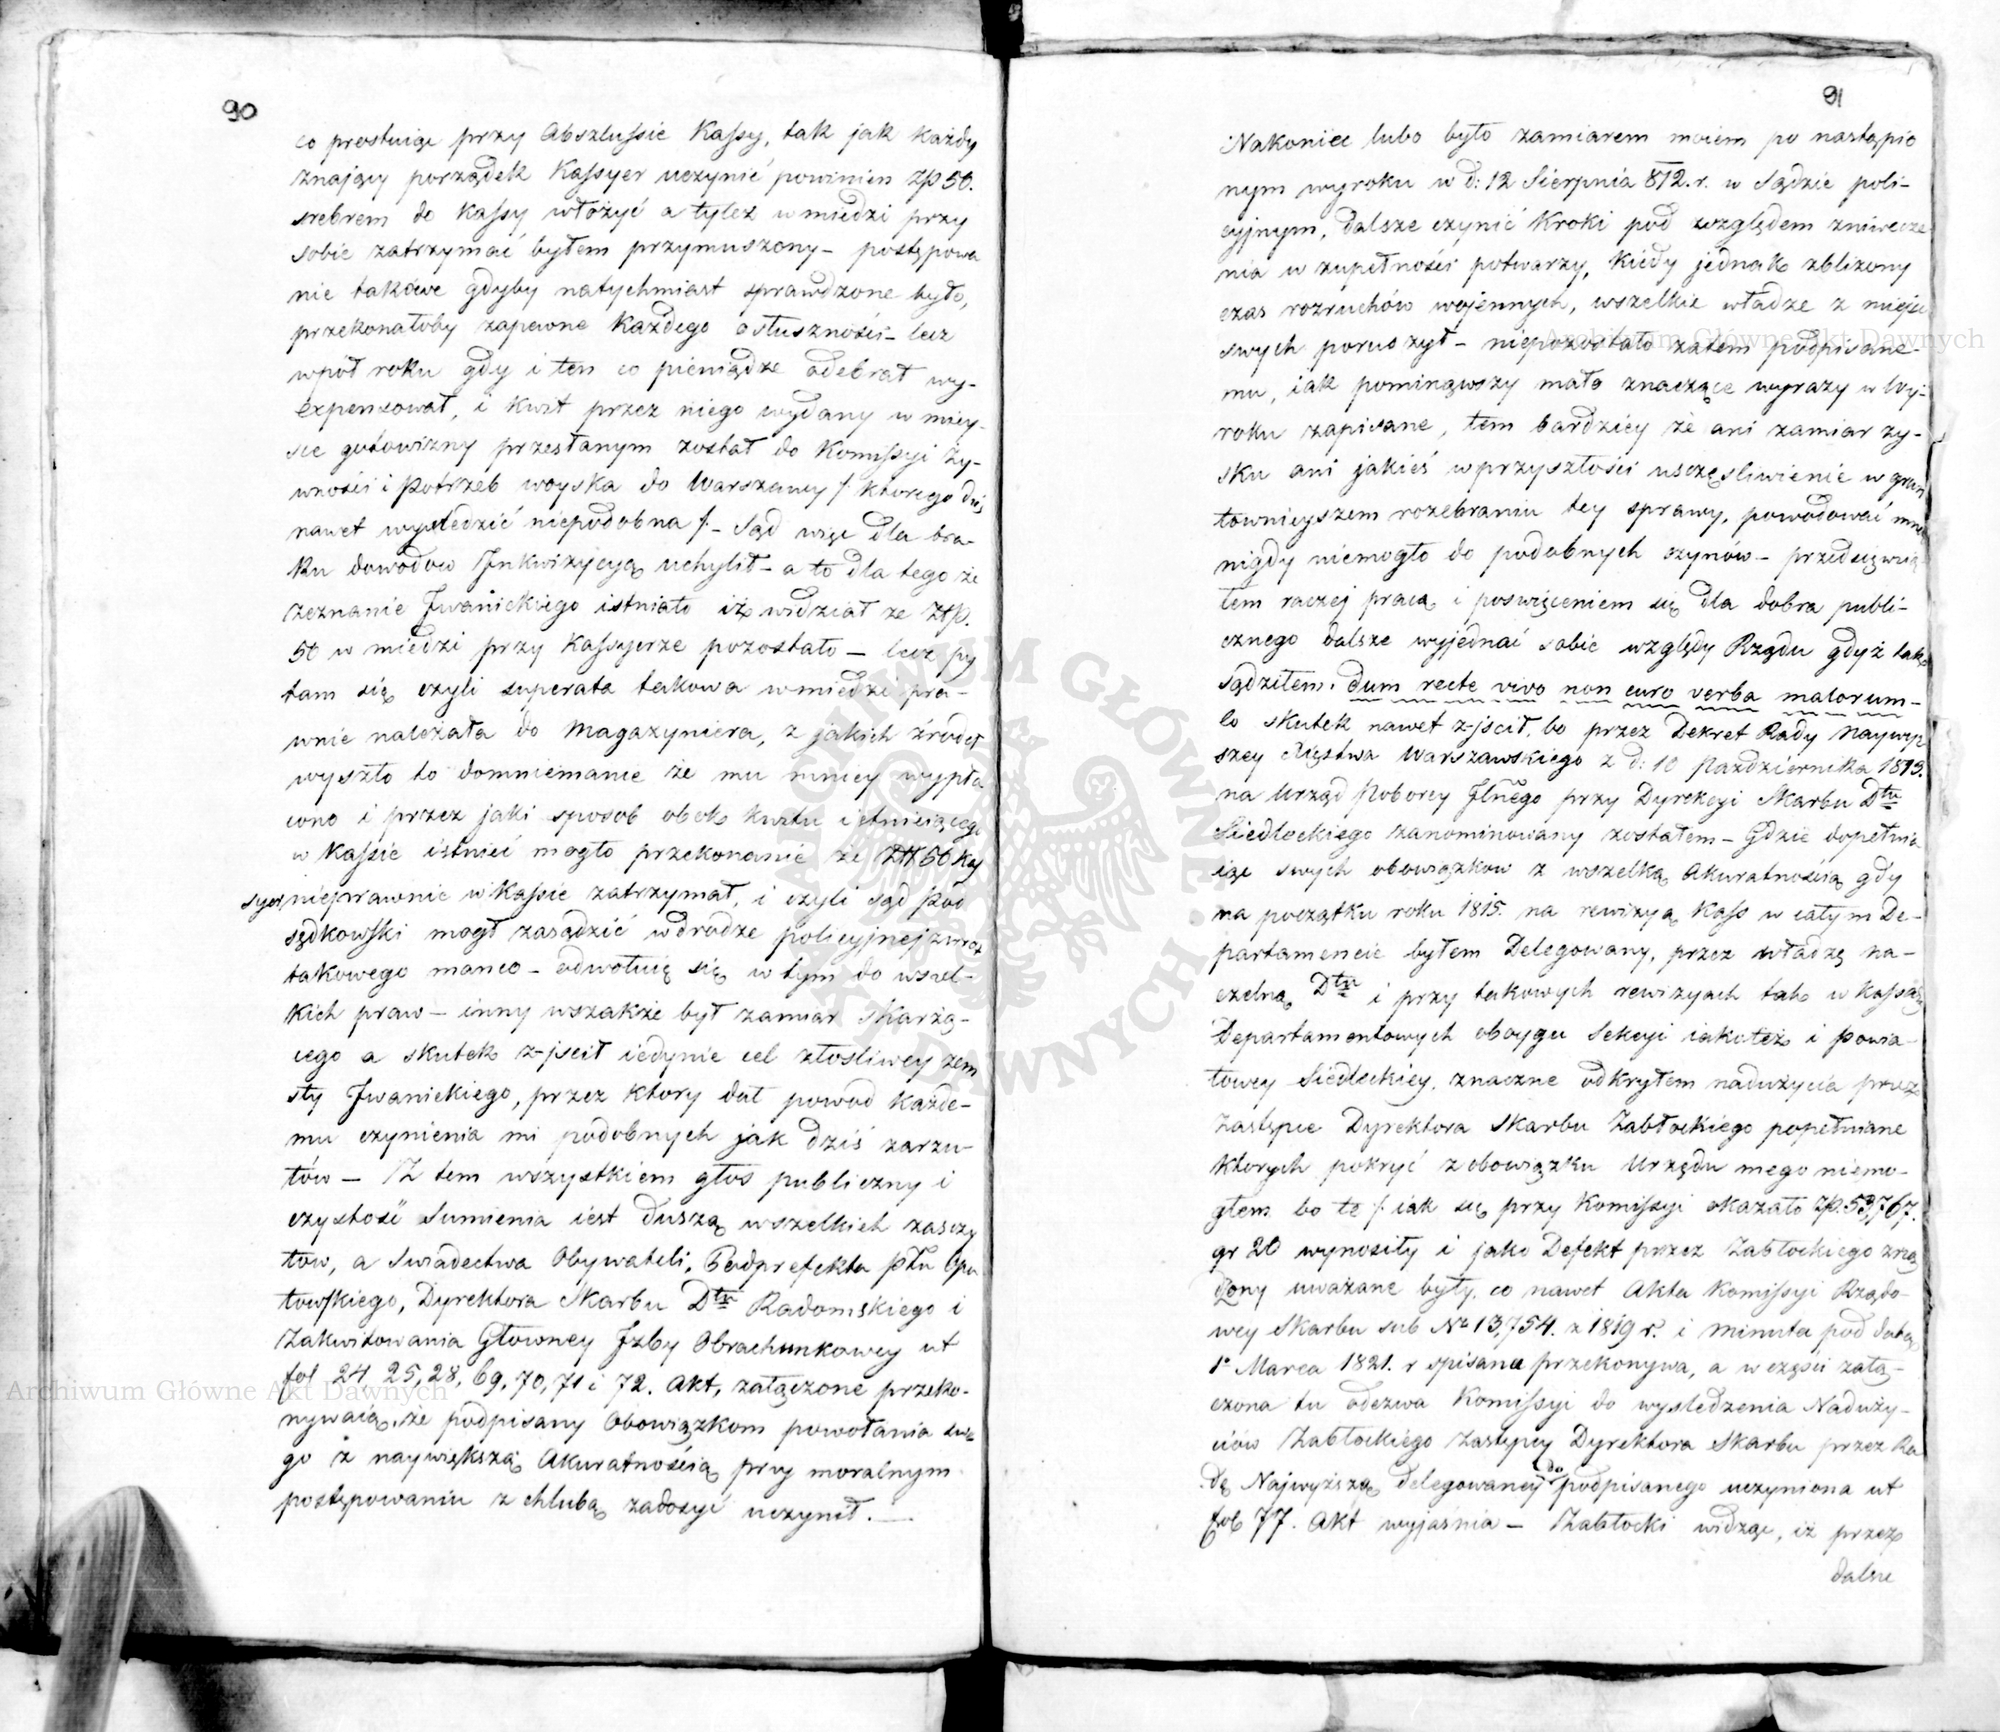 90
co prostuiąc przy Abszlussie Kassy, tak jak każdy
znaiący porządek Kassyer uczynić powinien Zp 50.
srebrem do Kassy włożyć a tyleż w miedzi przy
sobie zatrzymać byłem przymuszony – postępowa
nie takowe gdyby natychmiast sprawdzone było,
przekonałoby zapewne każdego o słuszności – lecz
wpół roku gdy i ten co pieniądze odebrał wy-
expensował, i kwit przez niego wydany w miey-
sce gotowizny przesłanym został do Komissyi Ży-
wności i Potrzeb woyska do Warszawy /: którego dziś
nawet wyśledzić niepodobna :/ – Sąd więc dla bra-
ku dowodow Inkwizycyą uchylił – a to dla tego że
zeznanie Iwanickiego istniało iż widział że Złp.
50 w miedzi przy Kassyerze pozostało – lecz py
tam się czyli superata takowa w miedzi pra-
wnie należała do Magazyniera, z jakich źrodeł
wyszło to domniemanie że mu mniey wypła
cono i przez jaki sposob obok kwitu istnieiącego
w Kassie istnieć mogło przekonanie że Zł 50 Kas
syer nieprawnie w Kassie zatrzymał, i czyli sąd Pod
sędkowski mogł zasądzić w drodze policyjnej zwrot
takowego manco – odwołuię się w tym do wszel-
kich praw – inny wszakże był zamiar skarżą-
cego a skutek z-jscił iedynie cel złosliwey zem
sty Iwanickiego, przez ktory dał powod każde-
mu czynienia mi podobnych jak dziś zarzu-
tów – Z tem wszystkiem głos publiczny i
czystość Sumienia iest duszą wszelkich zaszczy
tów, a świadectwa Obywateli, Podprefekta Ptu Opa
towskiego, Dyrektora Skarbu Dtu Radomskiego i
Zakwitowania Głowney Izby Obrachunkowey ut
fol 24 25, 28, 69, 70, 71 i 72. Akt, załączone przeko-
nywaią, że podpisany Obowiązkom powołania swe
go z naywiększą Akuratnością przy moralnym
postępowaniu z chlubą zadosyć uczynił. —
91
Nakoniec lubo było zamiarem moiem po nastąpio
nym wyroku w d: 12 Sierpnia 812. r. w Sądzie poli-
cyjnym, dalsze czynić kroki pod względem zniwecze
nia w zupełności potwarzy, kiedy jednak zbliżony
czas rozruchów wojennych, wszelkie władze z miejsc
swych poruszył – niepozostało zatem podpisane-
mu, iak pominąwszy mało znaczące wyrazy w Wy-
roku zapisane, tem bardziey że ani zamiar zy-
sku ani jakieś w przyszłości uszczęsliwienie w grun
townieyszem rozebraniu tey sprawy, powodować mnie
nigdy niemogło do podobnych czynów – przedsięwzią
łem raczej pracą i poswięceniem się dla dobra publi-
cznego dalsze wyjednać sobie względy Rządu gdyż tak
sądziłem. dum recte vivo non curo verba malorum –
co skutek nawet z-jscił, bo przez Dekret Rady Naywyż
szey Xięstwa Warszawskiego z d: 10 Pazdziernika 1813.
na Urząd Poborcy Jlnego przy Dyrekcyi Skarbu Dtu
Siedleckiego zanominowany zostałem – Gdzie dopełnia
iąc swych obowiązkow z wszelką Akuratnością gdy
na początku roku 1815. na rewizyą Kass w całym De-
partamencie byłem Delegowany, przez władzę na-
czelną Dtu i przy takowych rewizyach tak w Kassach
Departamentowych oboygu Sekcyi iakoteż i Powia-
towey Siedleckiey, znaczne odkryłem nadużycia przez
Zastępcę Dyrektora Skarbu Zabłockiego popełniane
ktorych pokryć z obowiązku Urzędu mego niemo-
głem bo te /: iak się przy Komissyi okazało Zp. 53,767.
gr 20 wynosiły i jako Defekt przez Zabłockiego zrzą
dzony uważane były, co nawet Akta Komissyi Rządo-
wey Skarbu sub No 13,754. z 1819 r. i minuta pod datą
1o Marca 1821. r spisana przekonywa, a w części załą-
czona tu odezwa Komissyi do wysledzenia Naduży-
ciów Zabłockiego Zastępcy Dyrektora Skarbu przez Ra
dę Najwyższą delegowaney do podpisanego uczyniona ut
fol 77. Akt wyjaśnia – Zabłocki widząc, iż przez
dalsze
Archiwum Główne Akt Dawnych
Archiwum Główne Akt Dawnych
ARCHIWUM GŁÓWNE AKT DAWNYCH